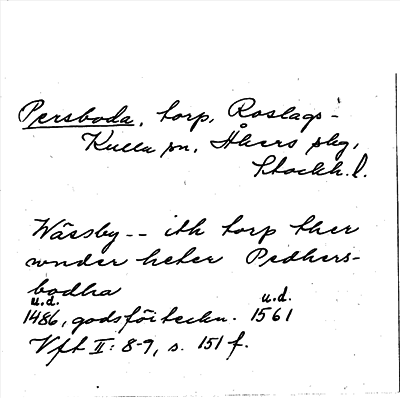 Persboda, torp, Roslags-
Kulla sn, Åkers skg,
Stockh. l.
Wässby -- ith torp ther
wnder heter Pedhers-
bodha
u.d. u.d.
1486, godsförteckn. 1561
Vft II: 8-9, s. 151 f.